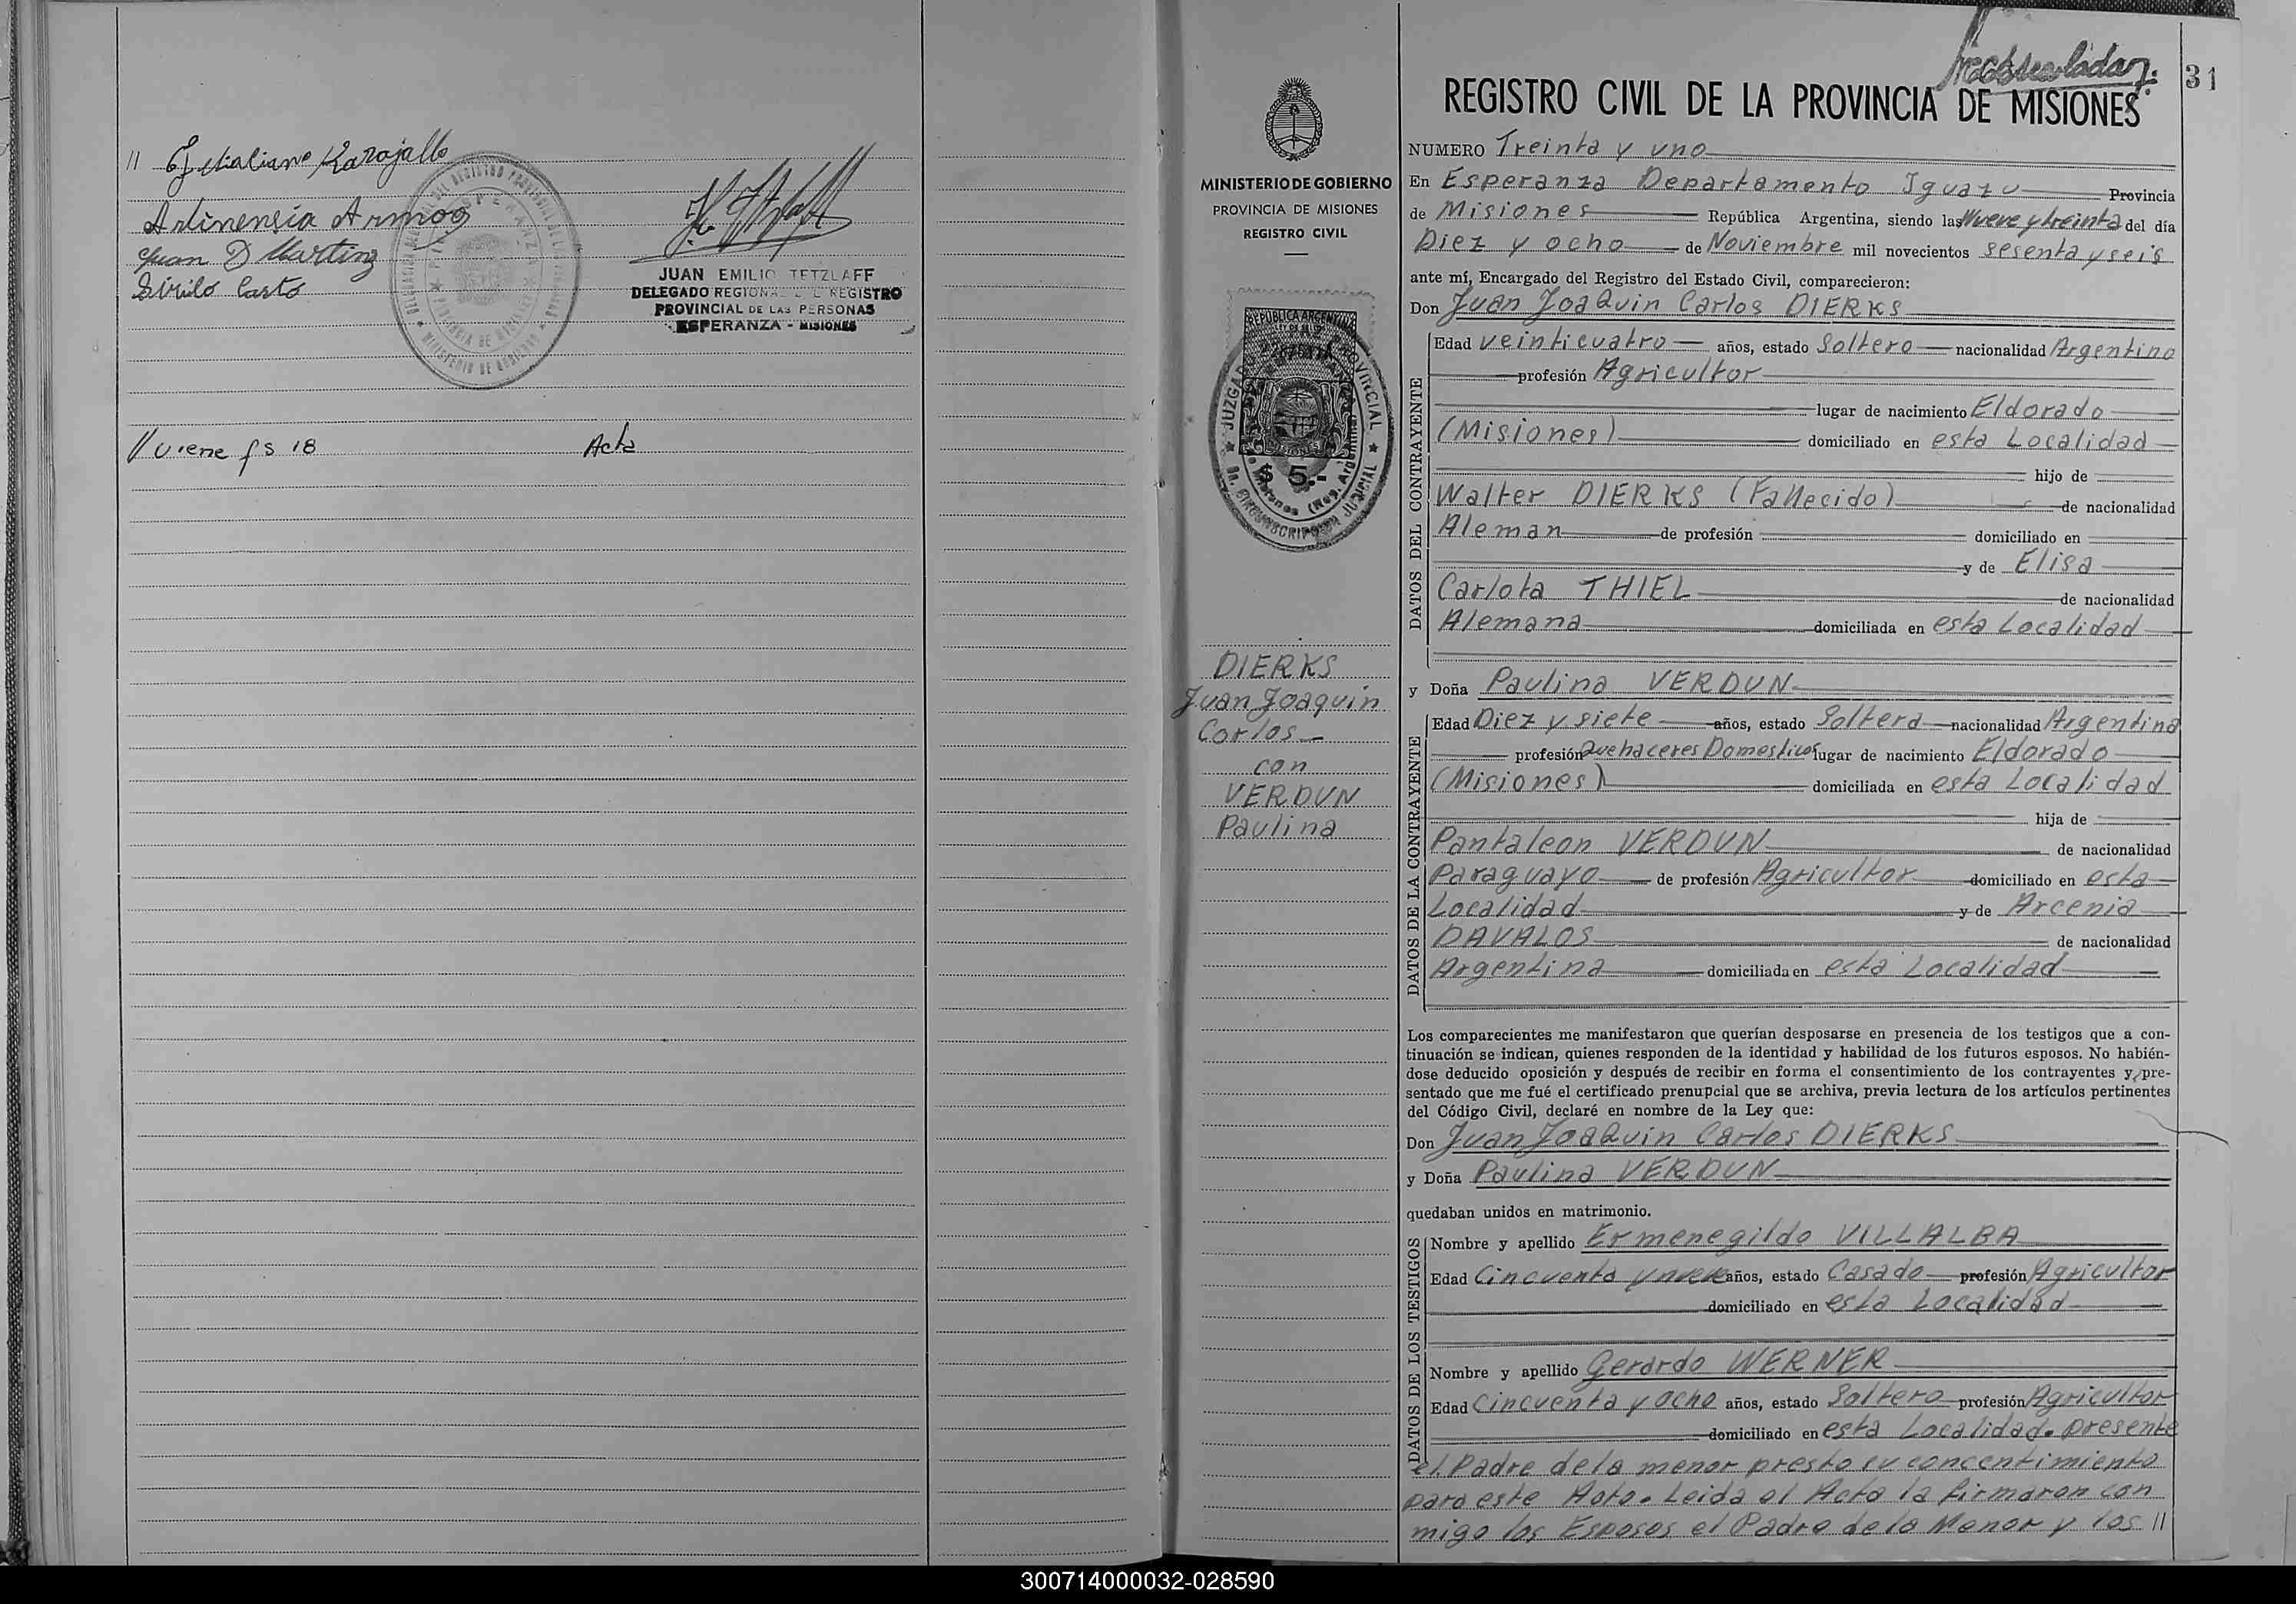 // viene fs 18 Acta
JUAN EMILIO TETZLAFF
DELEGADO REGIONAL DEL REGISTRO
PROVINCIAL DE LAS PERSONAS
ESPERANZA - MISIONES
MINISTERIO DE GOBIERNO
PROVINCIA DE MISIONES
REGISTRO CIVIL
REPUBLICA ARGENTINA
$ 5.-
DIERKS
Juan Joaquin
Carlos
con
VERDUN
Paulina
31
REGISTRO CIVIL DE LA PROVINCIA DE MISIONES
NUMERO Treinta y uno
En Esperanza Departamento Iguazu Provincia
de Misiones República Argentina, siendo las Nueve y treinta del día
Diez y ocho de Noviembre mil novecientos sesenta y seis
ante mí, Encargado del Registro del Estado Civil, comparecieron:
Don Juan JoaQuin Carlos DIERKS
DATOS DEL CONTRAYENTE
Edad veinticuatro años, estado Soltero nacionalidad Argentino
profesión Agricultor
lugar de nacimiento Eldorado
(Misiones) domiciliado en esta Localidad
hijo de
Walter DIERKS (Fallecido) de nacionalidad
Aleman de profesión domiciliado en
y de Elisa
Carlota THIEL de nacionalidad
Alemana domiciliada en esta Localidad
y Doña Paulina VERDUN
DATOS DE LA CONTRAYENTE
Edad Diez y siete años, estado Soltera nacionalidad Argentina
profesión Quehaceres Domesticos lugar de nacimiento Eldorado
(Misiones) domiciliada en esta Localidad
hija de
Pantaleon VERDUN de nacionalidad
Paraguayo de profesión Agricultor domiciliado en esta
Localidad y de Arcenia
DAVALOS de nacionalidad
Argentina domiciliada en esta Localidad
Los comparecientes me manifestaron que querían desposarse en presencia de los testigos que a con-
tinuación se indican, quienes responden de la identidad y habilidad de los futuros esposos. No habién-
dose deducido oposición y después de recibir en forma el consentimiento de los contrayentes y pre-
sentado que me fué el certificado prenupcial que se archiva, previa lectura de los artículos pertinentes
del Código Civil, declaré en nombre de la Ley que:
Don Juan JoaQuin Carlos DIERKS
y Doña Paulina VERDUN
quedaban unidos en matrimonio.
DATOS DE LOS TESTIGOS
Nombre y apellido Ermenegildo VILLALBA
Edad Cincuenta y nueve años, estado Casado profesión Agricultor
domiciliado en esta Localidad
Nombre y apellido Gerardo WERNER
Edad Cincuenta y ocho años, estado Soltero profesión Agricultor
domiciliado en esta Localidad. Presente
el Padre de la menor presto su concentimiento
para este Acto. Leida el Acta la firmaron con
migo los Esposos el Padre de la Menor y los //
300714000032-028590